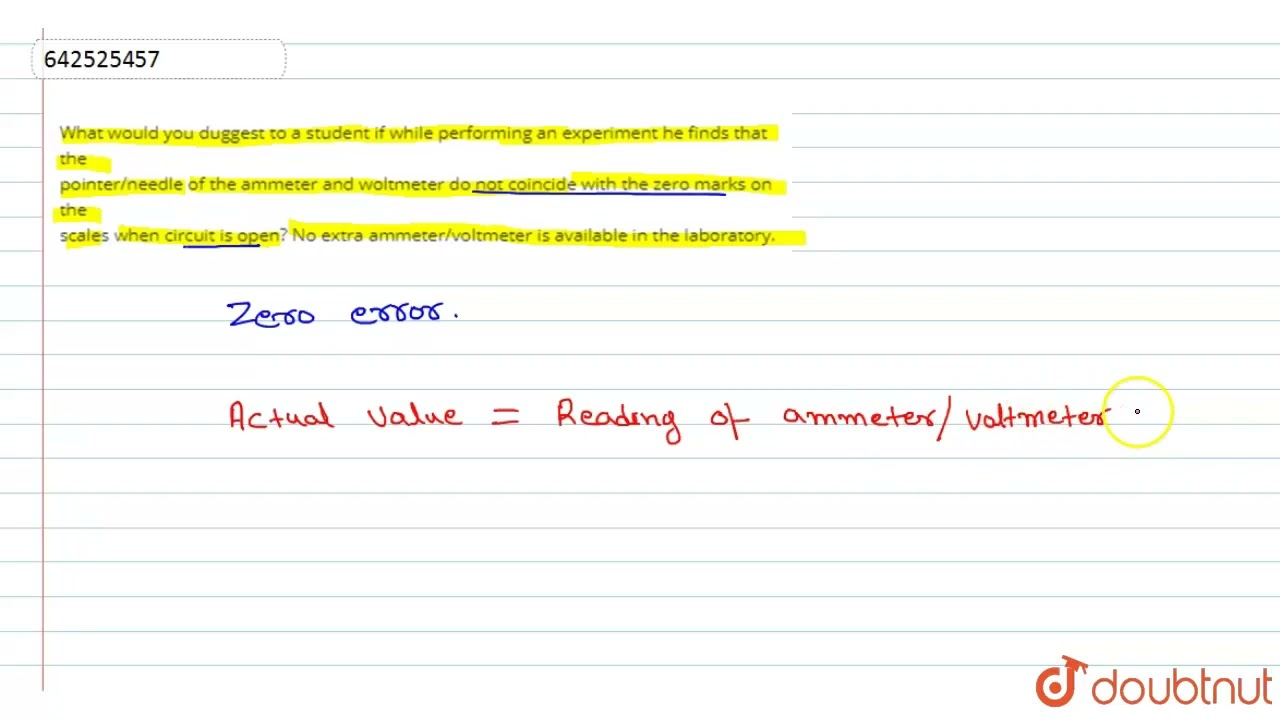 642525457
What would you duggest to a student if while performing an experiment he finds that
the
pointer/needle of the ammeter and woltmeter do not coincide with the zero marks on
the
scales when circuit is open? No extra ammeter/voltmeter is available in the laboratory.
Zero error.
Actual value = Reading of ammeter/voltmeter
doubtnut